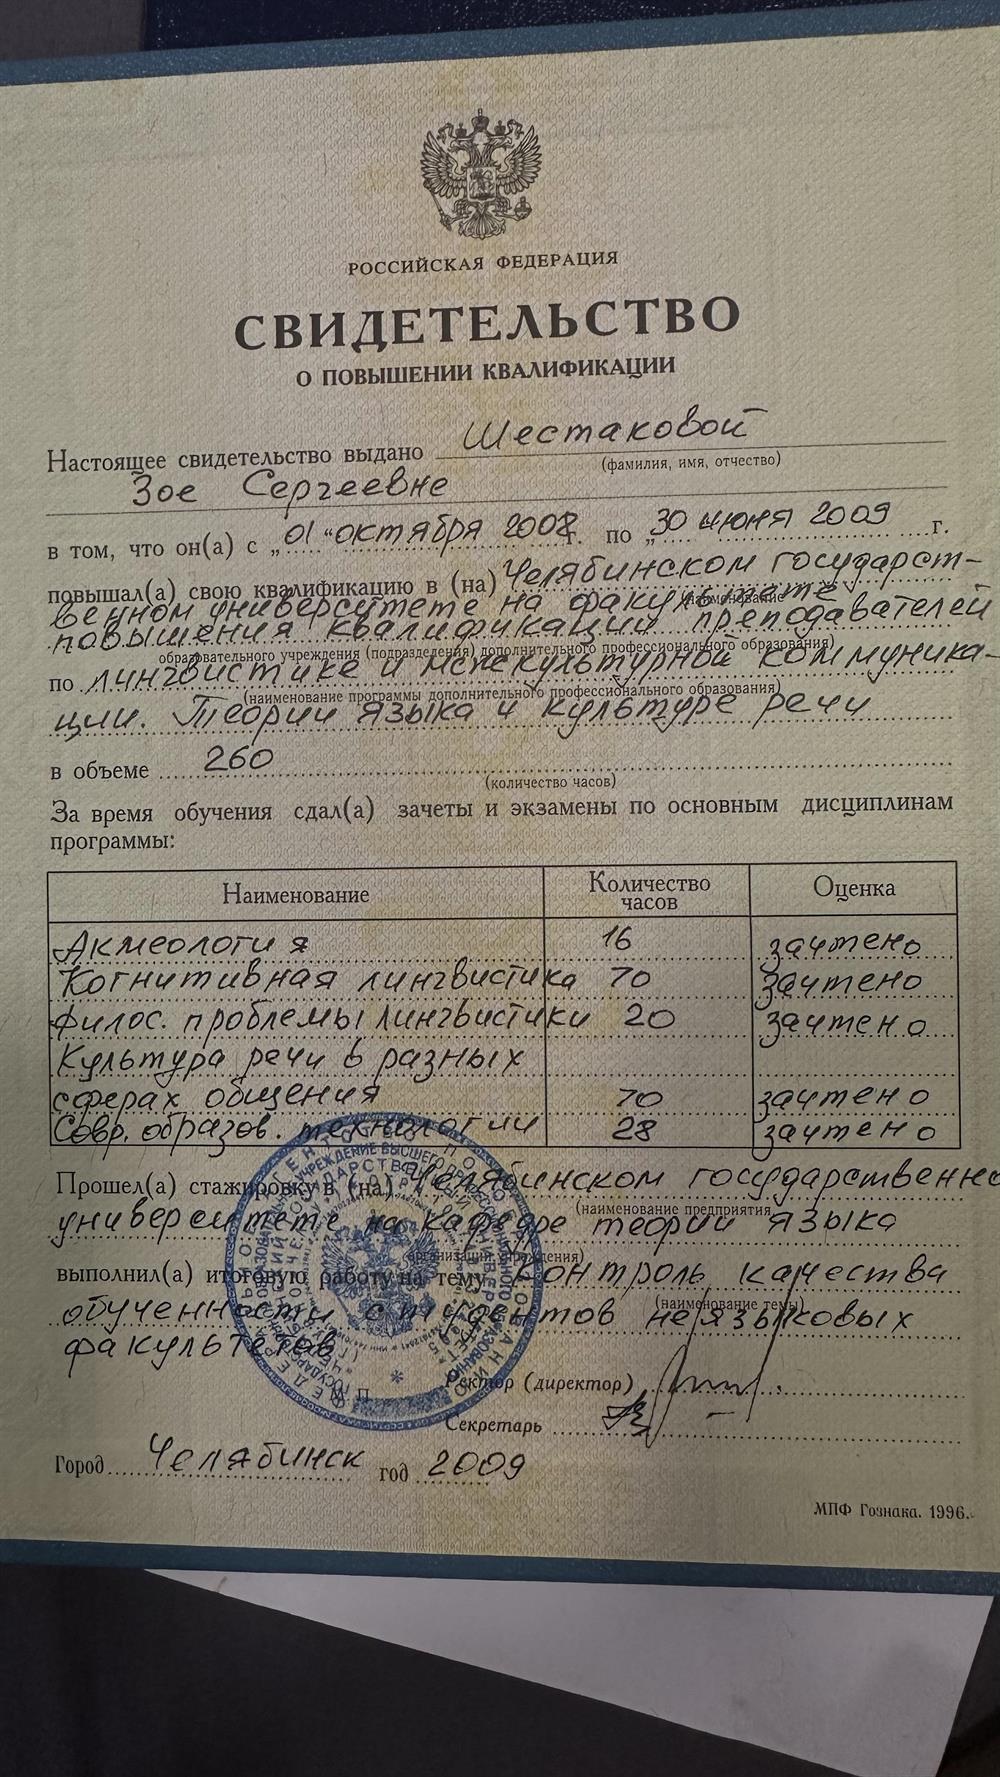 РОССИЙСКАЯ ФЕДЕРАЦИЯ
СВИДЕТЕЛЬСТВО
О ПОВЫШЕНИИ КВАЛИФИКАЦИИ
Настоящее свидетельство выдано Шестаковой
(фамилия, имя, отчество)
Зое Сергеевне
в том, что он(а) с „01“ октября 2008 г. по „30 июня 2009 г.
повышал(а) свою квалификацию в (на) Челябинском государст-
(наименование
венном университете на факультете
повышения квалификации преподавателей
образовательного учреждения (подразделения) дополнительного профессионального образования)
по лингвистике и межкультурной коммуника-
(наименование программы дополнительного профессионального образования)
ции. Теории языка и культуре речи
в объеме 260
(количество часов)
За время обучения сдал(а) зачеты и экзамены по основным дисциплинам
программы:
Наименование Количество часов Оценка
Акмеология 16 зачтено
Когнитивная лингвистика 70 зачтено
Филос. проблемы лингвистики 20 зачтено
Культура речи в разных
сферах общения 70 зачтено
Совр. образов. технологии 28 зачтено
Прошел(а) стажировку в (на) Челябинском государственно
(наименование предприятия,
университете на кафедре теории языка
организации, учреждения)
выполнил(а) итоговую работу на тему Контроль качества
(наименование темы)
обученности студентов неязыковых
факультетов
Ректор (директор)
М П
Секретарь
Город Челябинск год 2009
МПФ Гознака. 1996.